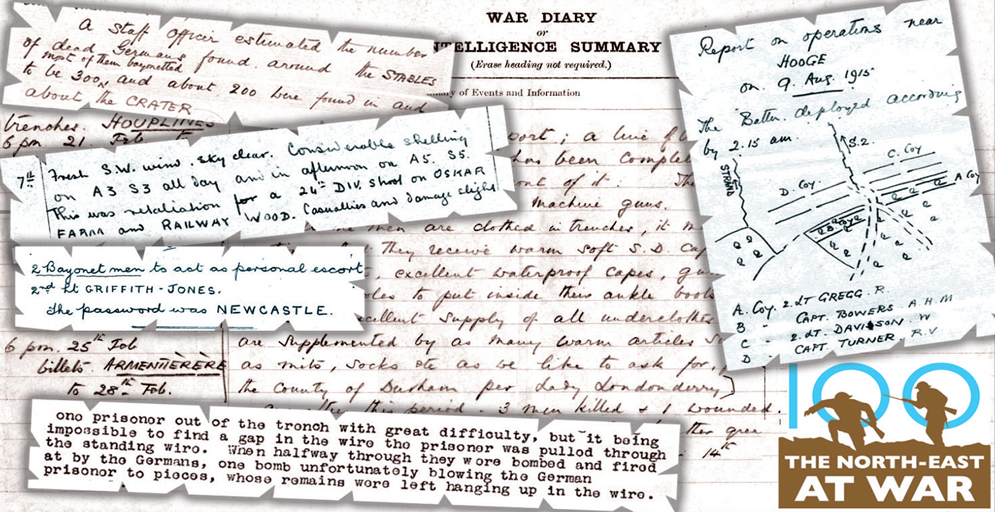 WAR DIARY
or
INTELLIGENCE SUMMARY
(Erase heading not required.)
of Events and Information
A Staff officer estimated the number
of dead Germans found around the STABLES
most of them bayonetted
to be 300, and about 200 were found in and
about the CRATER
trenches. HOUPLINES
6 pm 21 Feb
7th Fresh S.W. wind. Sky clear. Considerable shelling
on A3 S3 all day and in afternoon on A5. S5.
This was retaliation for a 24th DIV. shoot on OSKAR
FARM and RAILWAY WOOD. Casualties and damage slight
2 Bayonet men to act as personal escort
2nd Lt GRIFFITH-JONES.
The password was NEWCASTLE.
a line of
has been
out of it: The
machine guns.
men are clothed in trenches, it
they receive warm soft S.D. Cap
, excellent waterproof capes,
to put inside their ankle boots
excellent supply of all underclothes
6 pm. 25th Feb
billets ARMENTIÈRÈRE
to 28th Feb.
are supplemented by as many warm articles
as mits, socks etc as we like to ask for,
the County of Durham per Lady Londonderry)
this period - 3 men killed & 1 wounded.
14th
one prisoner out of the tronch with great difficulty, but it being
impossible to find a gap in the wire the prisoner was pulled through
the standing wire. When halfway through they wore bombed and fired
at by the Germans, one bomb unfortunately blowing the German
prisoner to pieces, whose remains wore left hanging up in the wire.
Report on operations near
HOOGE
on 9. Aug. 1915
The Battn. deployed according
by 2.15 am.
S.2.
STRAND
C. Coy
D. Coy
A Coy
A. Coy. 2.LT GREGG. R.
B - CAPT. BOWERS A.H.M
C - 2.LT. DAVISON W
D - CAPT. TURNER. R.V
100
THE NORTH-EAST
AT WAR